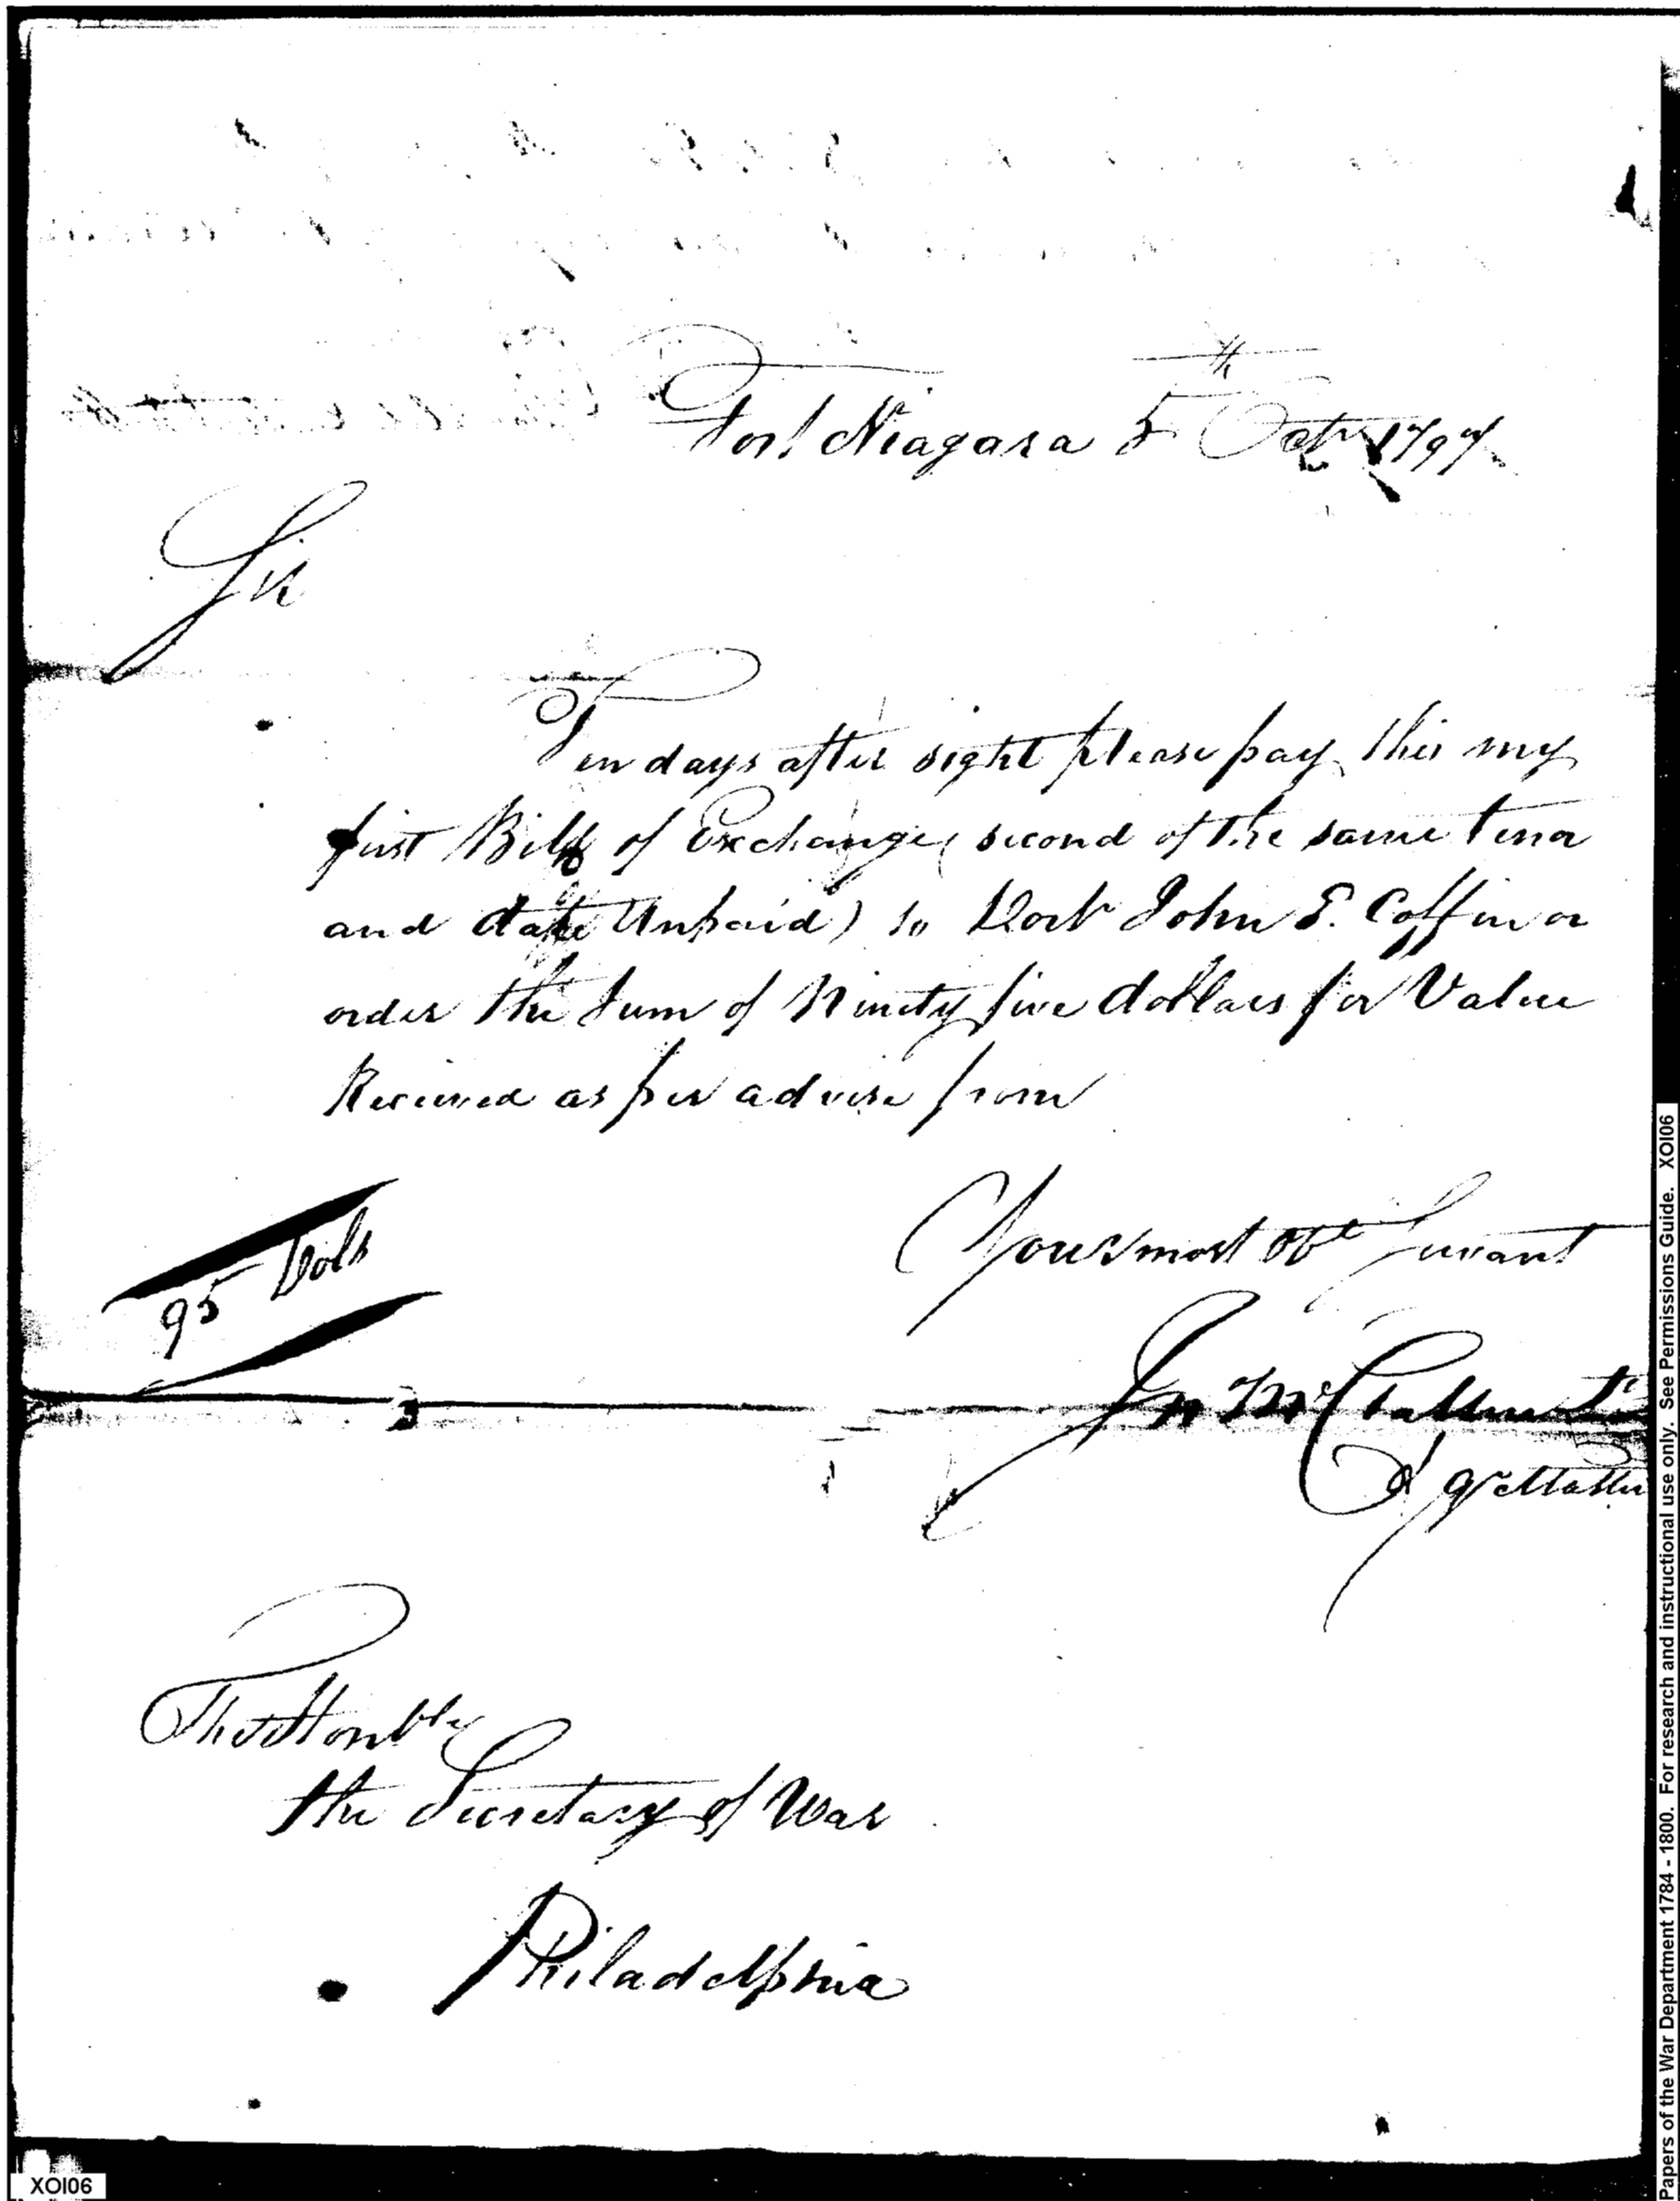 Fort Niagara 5th Octr 1797
Sir
Ten days after sight please pay this my
first Bill of Exchange (second of the same tenor
and date Unpaid) to Doctr John E. Coffin or
order the Sum of Ninety five dollars for Value
Received as per advise from
Your most Obt Servant
95 Dols
Jn McClallen
Qr Master
The Honble
the Secretary of War
Philadelphia
XOI06
Papers of the War Department 1784 - 1800. For research and instructional use only. See Permissions Guide. XOI06